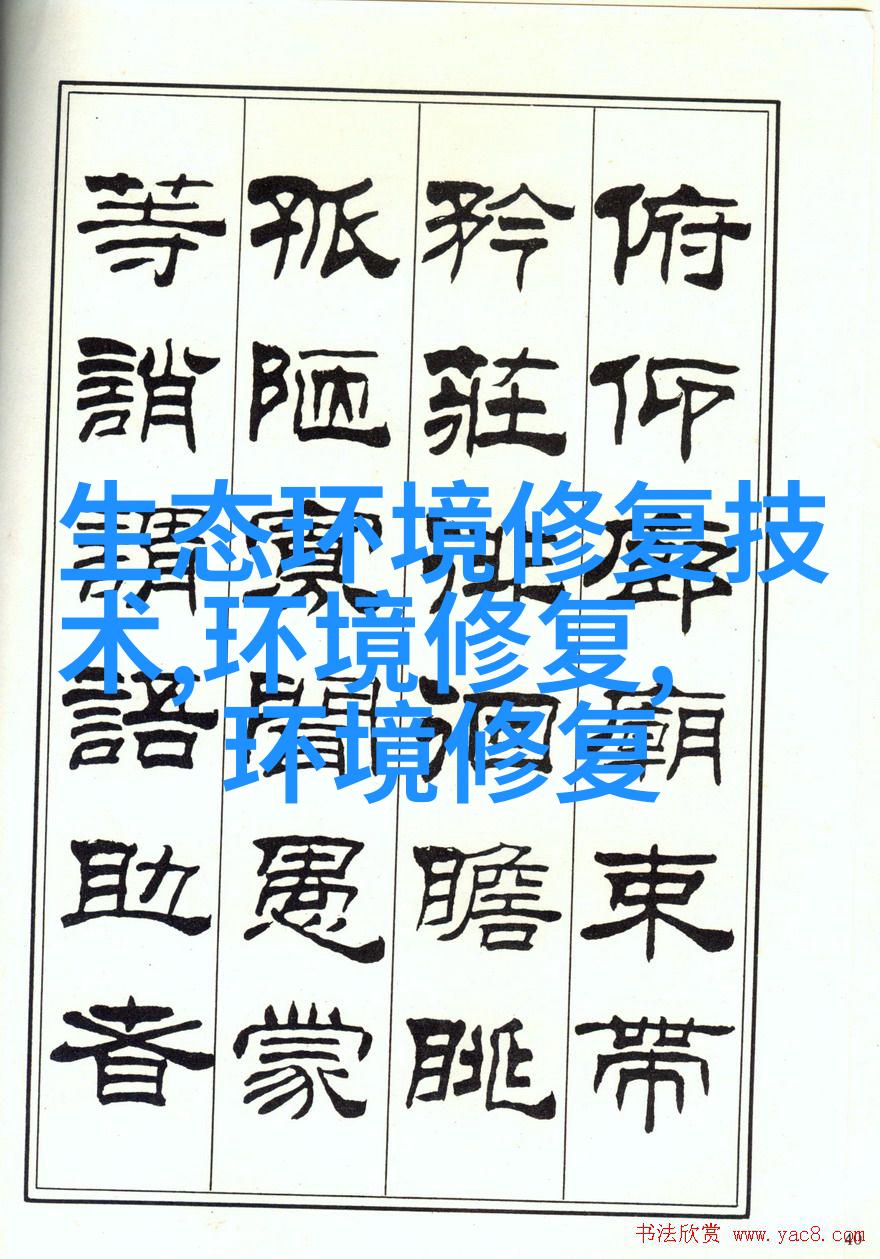 俯仰廊廟束帶
矜莊徘徊瞻眺
孤陋寡聞愚蒙
等誚謂語助者
生态环境修复技
术,环境修复,
环境修复
书法欣赏 www.yac8.com
40